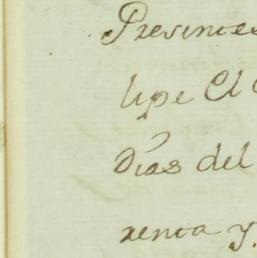 Presentes
lipe El
Dias del
renta y